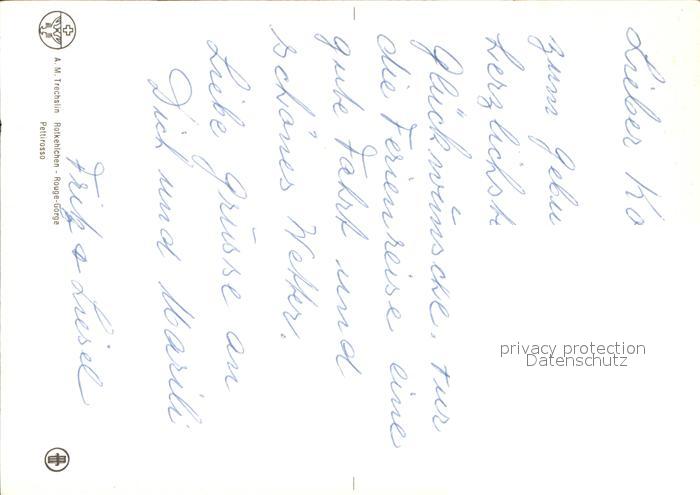 Lieber Ko
zum Gebu
herzlichst
Glückwünsche. Für
die Ferienreise eine
gute Fahrt und
schönes Wetter.
Liebe Grüsse an
Dich und Marili
Fritz & Liesel
A. M. Trechslin Rotkehlchen - Rouge-Gorge
Pettirosso
privacy protection
Datenschutz